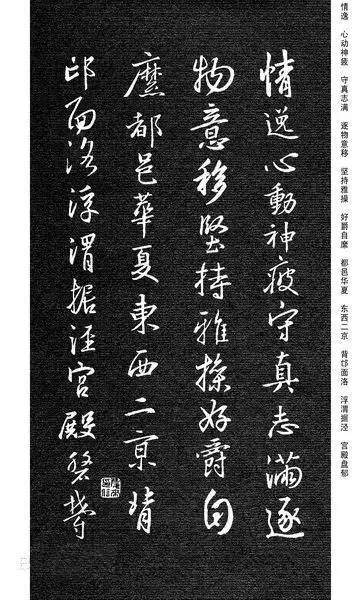 情逸 心动神疲 守真志满 逐物意移 坚持雅操 好爵自縻 都邑华夏 东西二京 背邙面洛 浮渭据泾 宫殿盘郁
情逸心動神疲守真志滿逐
物意移堅持雅操好爵自
縻都邑華夏東西二京背
邙面洛浮渭据涇宮殿盤鬱